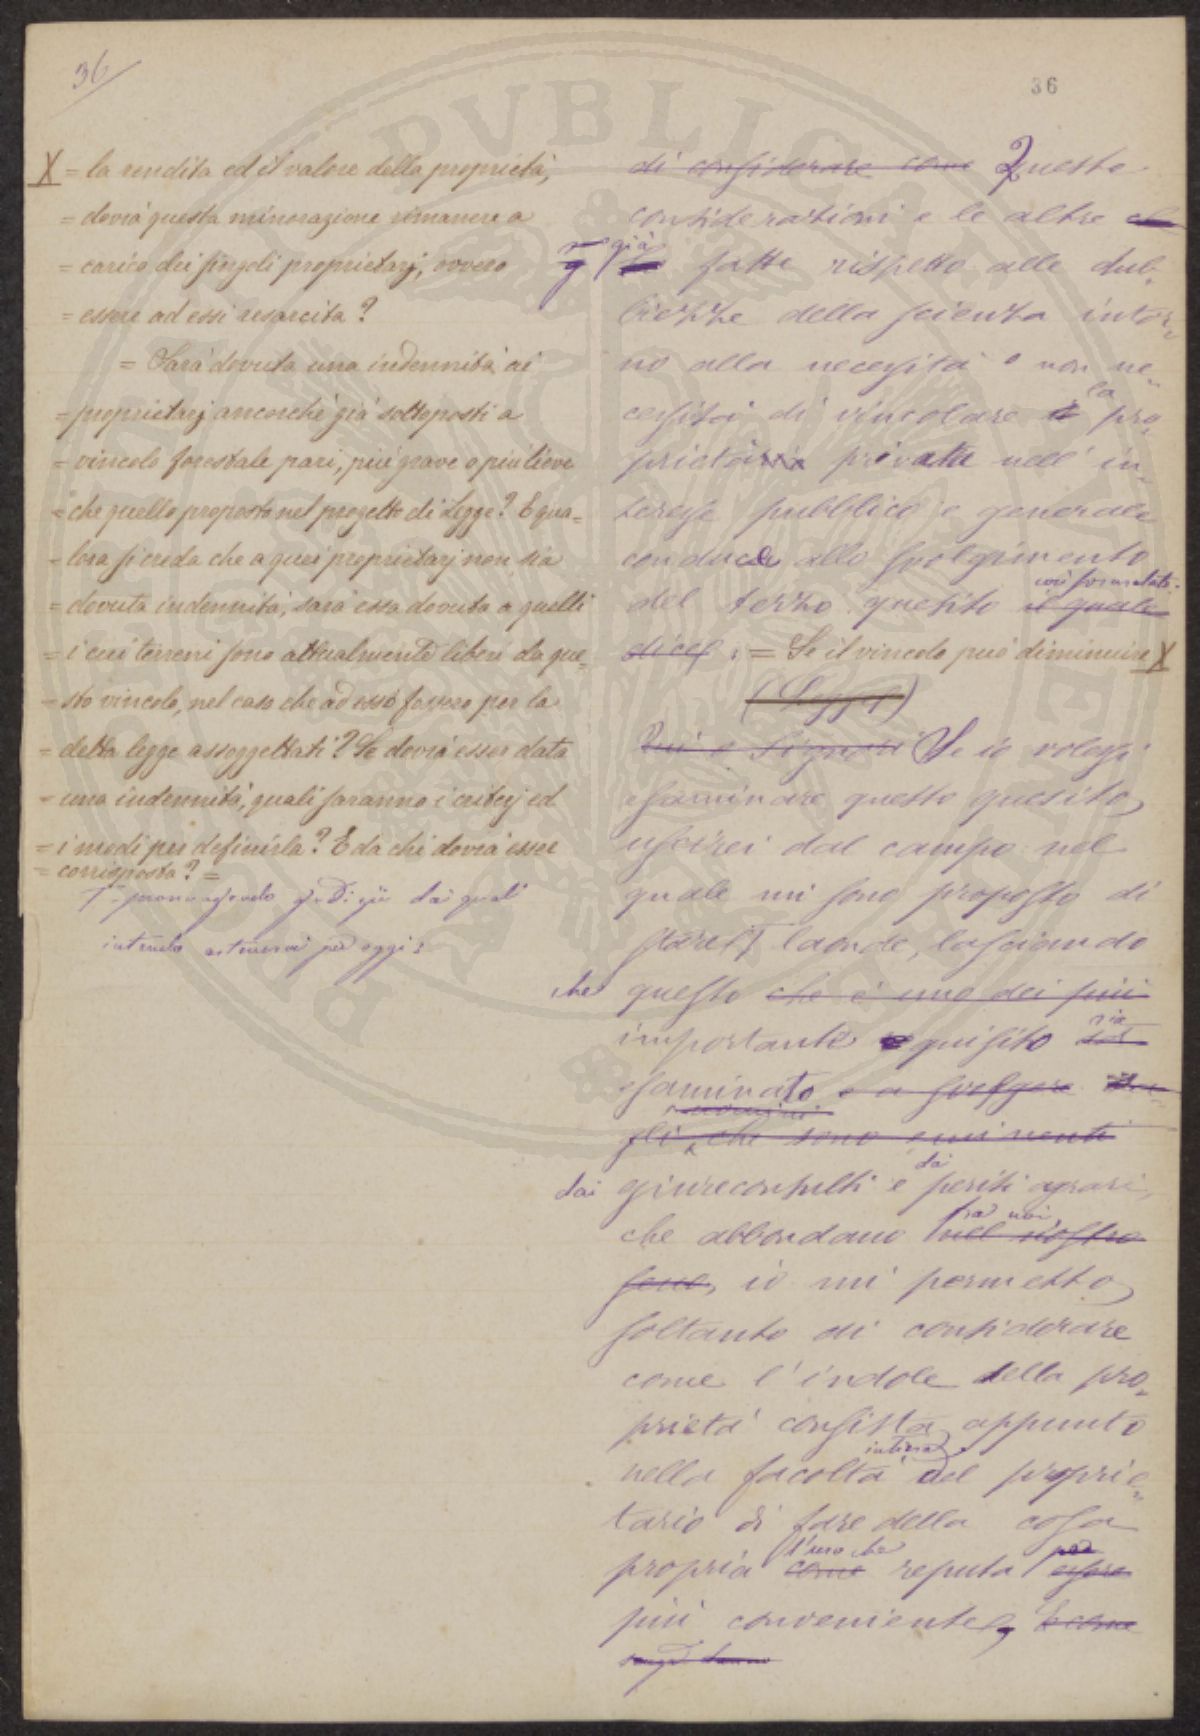 36
36
X = la rendita ed il valore della proprietà,
= dovrà questa minorazione rimanere a
= carico dei singoli proprietarj, ovvero
= essere ad essi resarcita?
= Sarà dovuta una indennità ai
= proprietarj ancorchè già sottoposti a
= vincolo forestale pari, più grave o più lieve
= che quello proposto nel progetto di Legge? E qua=
= lora si creda che a quei proprietarj non sia
= dovuta indennità, sarà essa dovuta a quelli
= i cui terreni sono attualmente liberi da que=
= sto vincolo, nel caso che ad esso fossero per la
= detta legge assoggettati? Se dovrà esser data
= una indennità, quali saranno i criterj ed
= i modi per definirla? E da chi dovrà esser
= corrisposta? =
dai quali
per oggi
di considerare come Queste
considerazioni e le altre
già fatte rispetto alle dub=
biezze della scienza intor=
no alla necessità o non ne=
cessità di vincolare la pro=
prietà privata nell' in=
teresse pubblico e generale
conduce allo svolgimento
del terzo quesito il quale così formulato:
dice: = Se il vincolo può diminuire X
(Legge)
Signori Se io volessi
esaminare questo quesito,
uscirei dal campo nel
quale mi sono proposto di
stare laonde, lasciando
che questo che è uno dei più
importante quisito sia
esaminato e a svolgere
gli che sono eminenti
dai giureconsulti e dai periti agrari,
che abbondano fra noi nel nostro
seno, io mi permetto
soltanto di considerare
come l'indole della pro=
prietà consista appunto
nella facoltà intiera del proprie=
tario di fare della cosa
propria come l'uso che reputa essere
più conveniente, e come